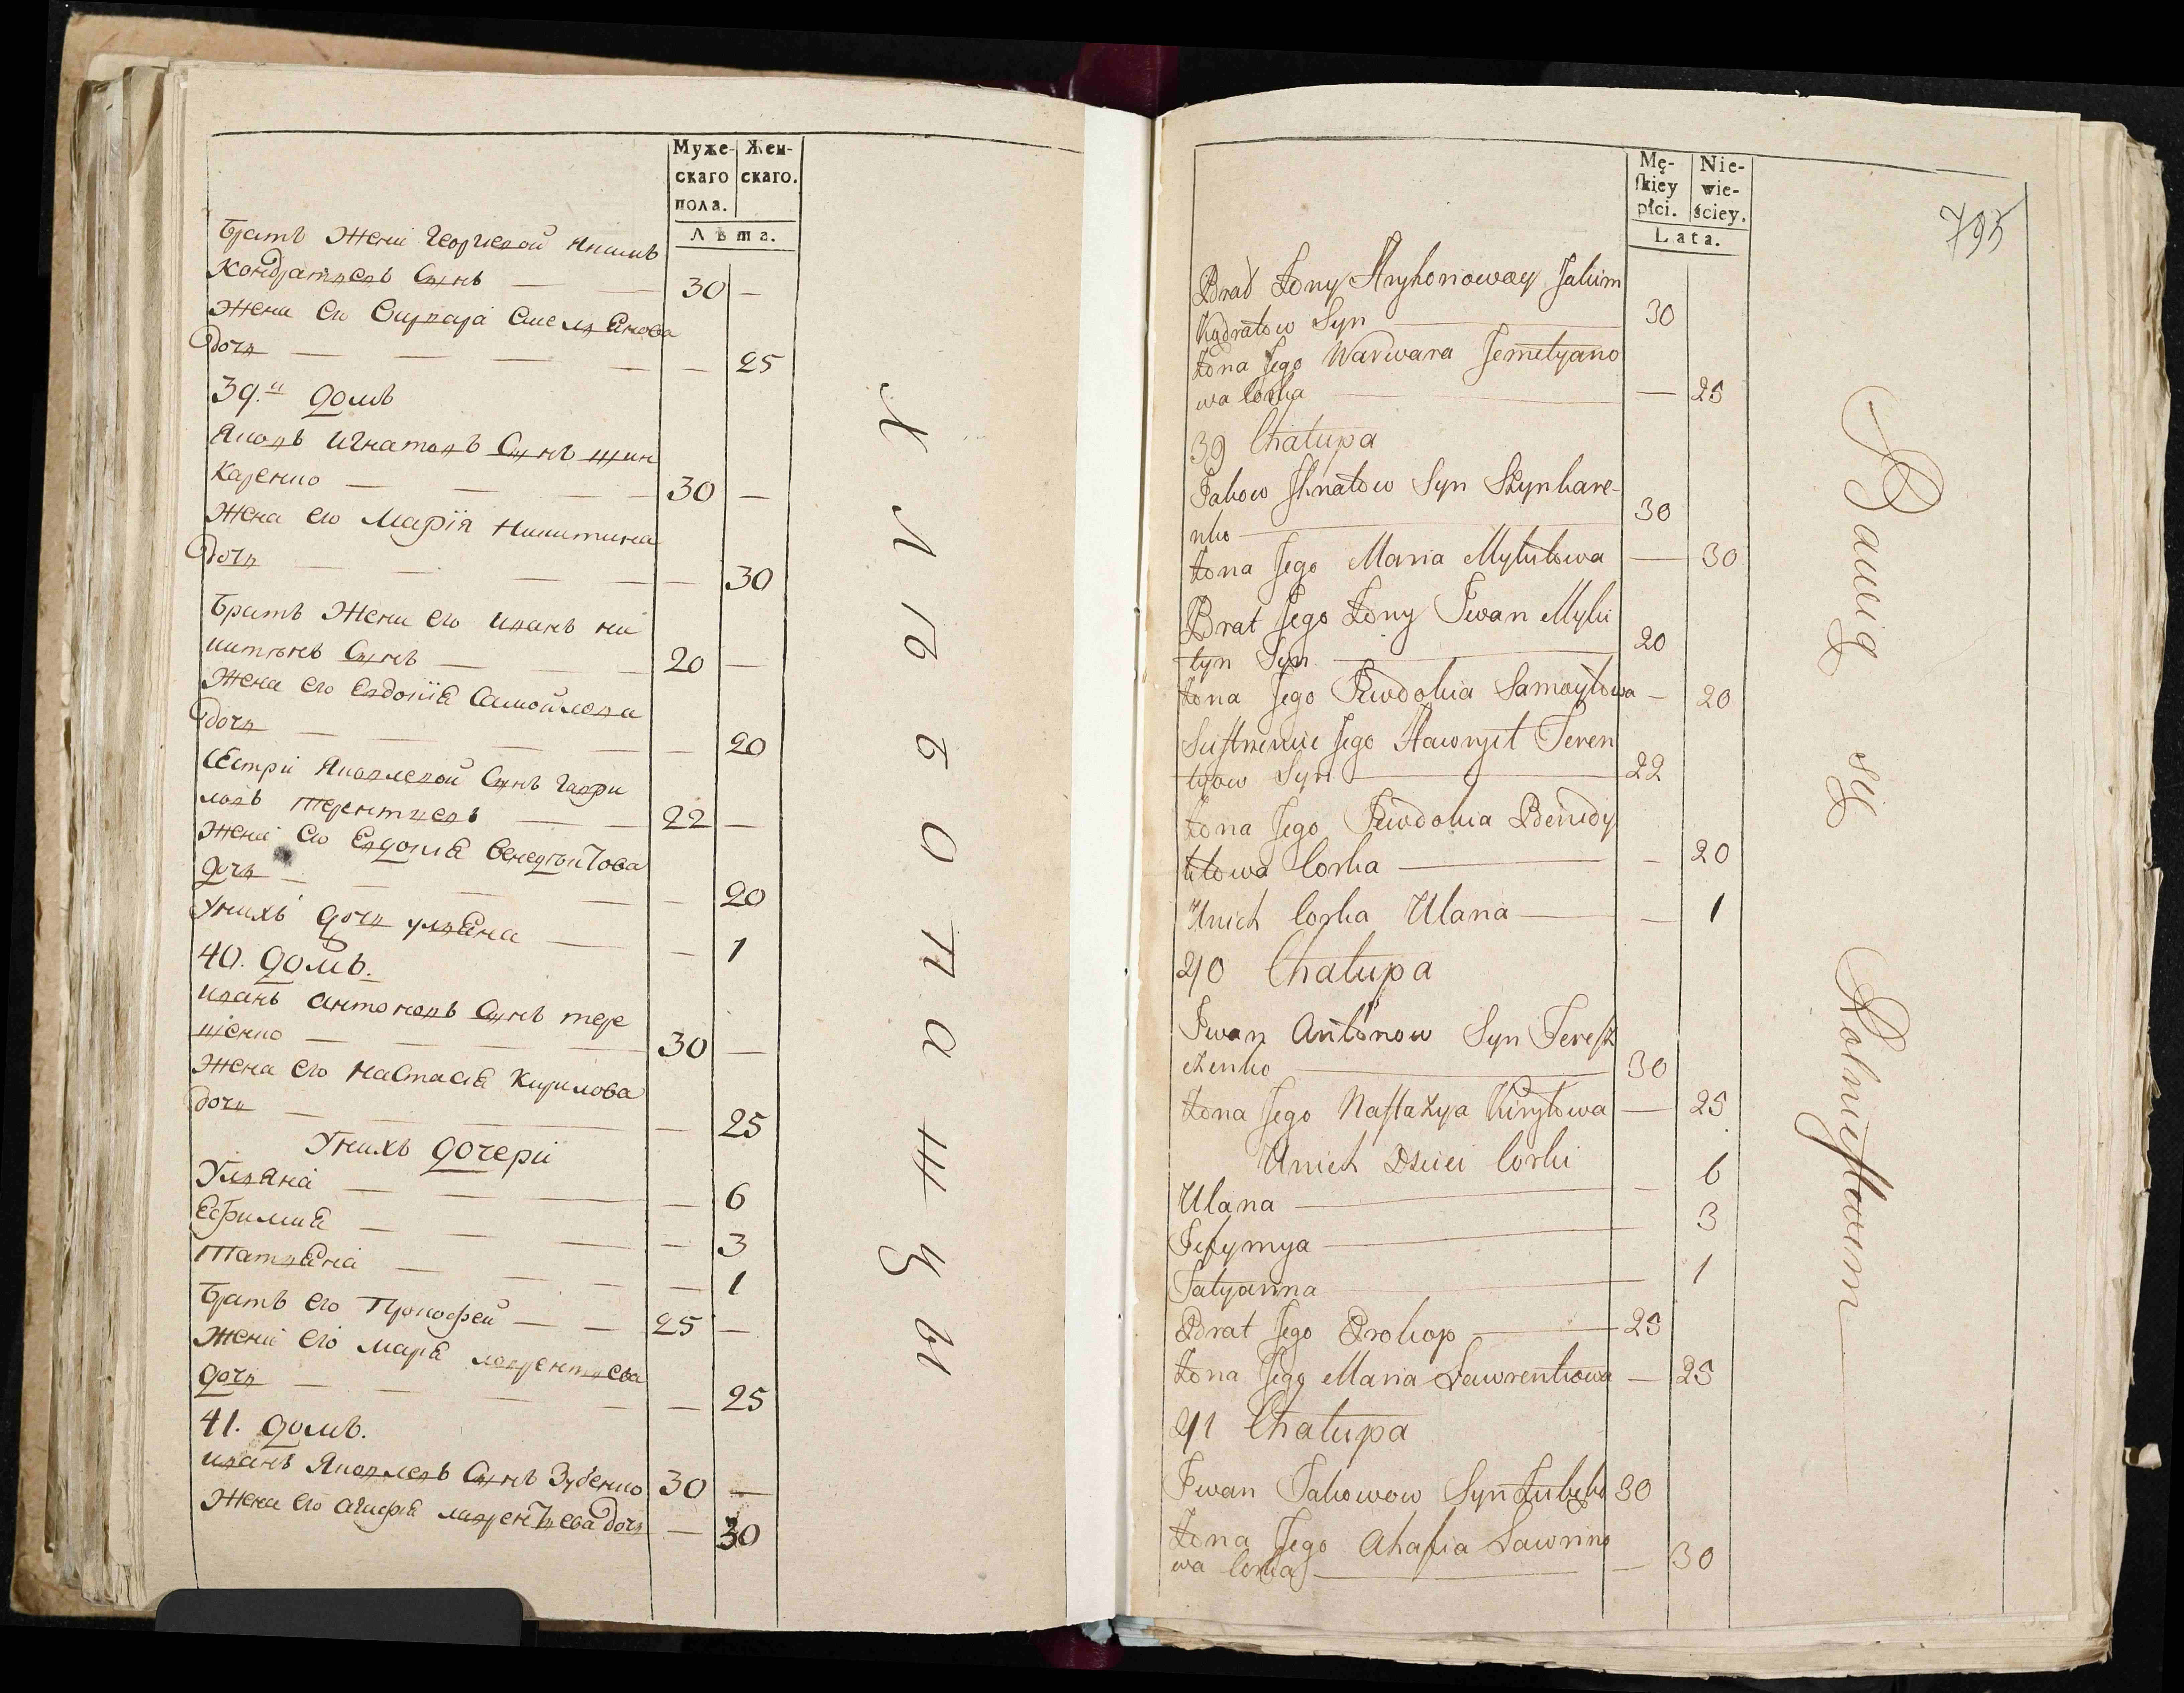 Муже-
скаго
пола.
Жен-
скаго.
Лѣта.
Братъ Жени Якимъ
Кондратьевъ Сынъ — 30 —
Жена его
дочь — — 25
39.й домъ
Яковъ Игнатовъ Сынъ Шин
каренко — 30 —
Жена его Марія Никитина
дочь — — 30
Братъ Жени его Иванъ Ни
китынъ Сынъ — 20 —
Жена его Евдокіѣ Самойлова
дочь — — 20
Сестри Яковлевой Сынъ Гаври
ловъ Терентьевъ — 22 —
Жена его Евдокіѣ
дочь — — 20
Унихъ дочь Ульѣна — — 1
40. домъ.
Иванъ Антоновъ Сынъ Тере
щенко — 30 —
Жена его Настасіѣ Кирилова
дочь — — 25
Унихъ дочери
Ульяна — — 6
Ефиміѣ — — 3
Татьѣна — — 1
Братъ его Прокофей — 25 —
Жена его Марѣ Лаврентьева
дочь — — 25
41. домъ.
Иванъ Яковлевъ Сынъ Зубенко 30 —
Жена его Агафіѣ Лаврентьева дочь — 30
Х Л 12 6 0 П а Ш Ц М
Mę-
ſkiey
płci.
Nie-
wie-
ściey.
Lata.
795
Brat Żony Jakim
Kądratow Syn — 30
Żona Jego Warwara Jemelyano
wa Corka — — 25
39 Chałupa
Jakow Ihnatow Syn Szynkare-
nko — 30
Żona Jego Maria Mykitowa — 30
Brat Jego Żony Iwan Myki
tyn Syn — 20
Żona Jego Jewdokia Samoyłowa — 20
Siestrenic Jego Hawryił Teren
tyow Syn — 22
Żona Jego Jewdokia Benedy
ktowa Corka — — 20
Unich Corka Ulana — — 1
40 Chałupa
Iwan Antonow Syn Tereſz
czenko — 30
Żona Jego Naſtazya Kiryłowa — 25
Unich Dzieci Corki
Ulana — — 6
Jefymya — 3
Tatyanna — 1
Brat Jego Prokop — 25
Żona Jego Maria Lawrentiowa — 25
41 Chałupa
Iwan Jakowow Syn Zubęko 30
Żona Jego Ahafia Lawrino
wa Corka — — 30
Bawią się Rolnictwem